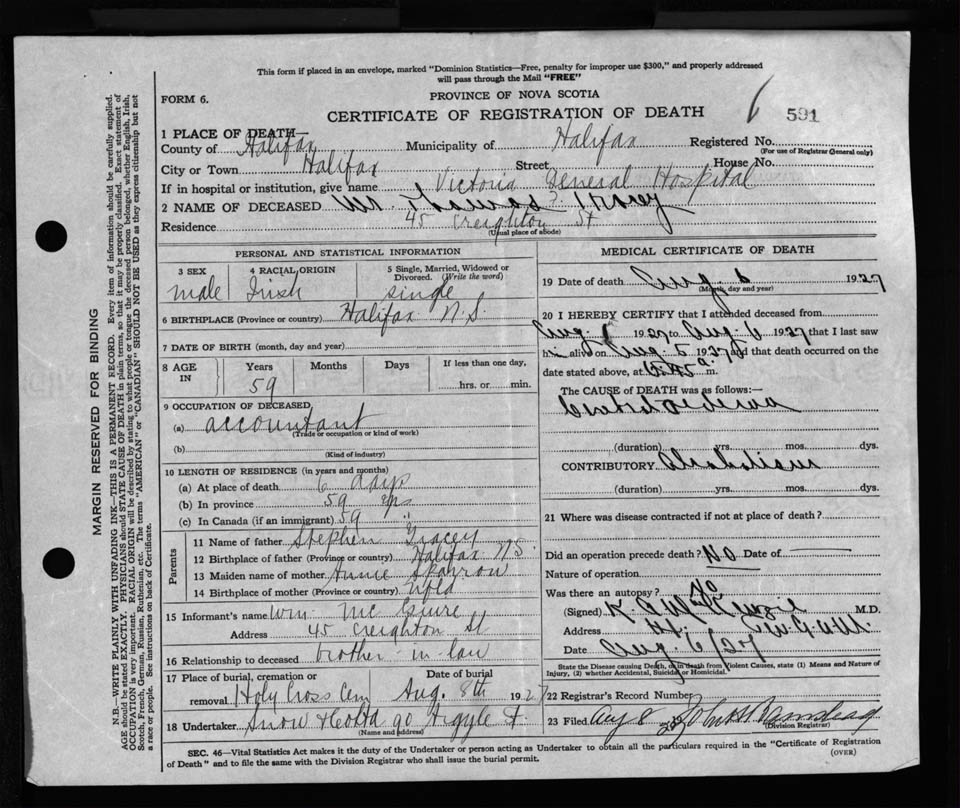 This form if placed in an envelope, marked "Dominion Statistics—Free, penalty for improper use $300," and properly addressed
will pass through the Mail "FREE"
FORM 6.
PROVINCE OF NOVA SCOTIA
CERTIFICATE OF REGISTRATION OF DEATH
6 591
1 PLACE OF DEATH—
County of Halifax Municipality of Halifax Registered No.
(For use of Registrar General only)
City or Town Halifax Street House No.
If in hospital or institution, give name Victoria General Hospital
2 NAME OF DECEASED Mr. Thomas Tracey
Residence 45 Creighton St
(Usual place of abode)
PERSONAL AND STATISTICAL INFORMATION
3 SEX 4 RACIAL ORIGIN 5 Single, Married, Widowed or
Divorced. (Write the word)
male Irish single
6 BIRTHPLACE (Province or country) Halifax N.S.
7 DATE OF BIRTH (month, day and year)
8 AGE IN Years Months Days If less than one day,
59 hrs. or min.
9 OCCUPATION OF DECEASED
(a) accountant
(Trade or occupation or kind of work)
(b)
(Kind of industry)
10 LENGTH OF RESIDENCE (in years and months)
(a) At place of death 6 days
(b) In province 59 yrs
(c) In Canada (if an immigrant) 59 "
Parents
11 Name of father Stephen Tracey
12 Birthplace of father (Province or country) Halifax N.S.
13 Maiden name of mother Annie Sparrow
14 Birthplace of mother (Province or country) Nfld
15 Informant's name Wm. McGuire
Address 45 Creighton St
16 Relationship to deceased brother-in-law
17 Place of burial, cremation or Date of burial
removal Holy Cross Cem Aug. 8th 1927
18 Undertaker Snow 90 Argyle St.
(Name and address)
MEDICAL CERTIFICATE OF DEATH
19 Date of death Aug. 6 1927
(Month, day and year)
20 I HEREBY CERTIFY that I attended deceased from
Aug. 1 1927 to Aug 6 1927 that I last saw
him alive on Aug 5 1927 and that death occurred on the
date stated above, at 6.45 a. m.
The CAUSE of DEATH was as follows:—
(duration) yrs. mos. dys.
CONTRIBUTORY Alcoholism
(duration) yrs. mos. dys.
21 Where was disease contracted if not at place of death?
Did an operation precede death? No Date of
Nature of operation
Was there an autopsy? No
(Signed) M.D.
Address
Date Aug. 6/27
State the Disease causing Death, or in death from Violent Causes, state (1) Means and Nature of
Injury, (2) whether Accidental, Suicidal or Homicidal.
22 Registrar's Record Number
23 Filed Aug 8
(Division Registrar)
SEC. 46—Vital Statistics Act makes it the duty of the Undertaker or person acting as Undertaker to obtain all the particulars required in the "Certificate of Registration
of Death" and to file the same with the Division Registrar who shall issue the burial permit.
(OVER)
MARGIN RESERVED FOR BINDING
N.B.—WRITE PLAINLY WITH UNFADING INK—THIS IS A PERMANENT RECORD. Every item of information should be carefully supplied.
AGE should be stated EXACTLY. PHYSICIANS should STATE CAUSE OF DEATH in plain terms, so that it may be properly classified. Exact statement of
OCCUPATION is very important. RACIAL ORIGIN will be described by stating to what people or tongue the deceased person belonged, whether English, Irish,
Scotch, French, German, Russian, Ruthenian, etc. The terms "AMERICAN" or "CANADIAN" SHOULD NOT BE USED as they express citizenship but not
a race or people. See instructions on back of Certificate.